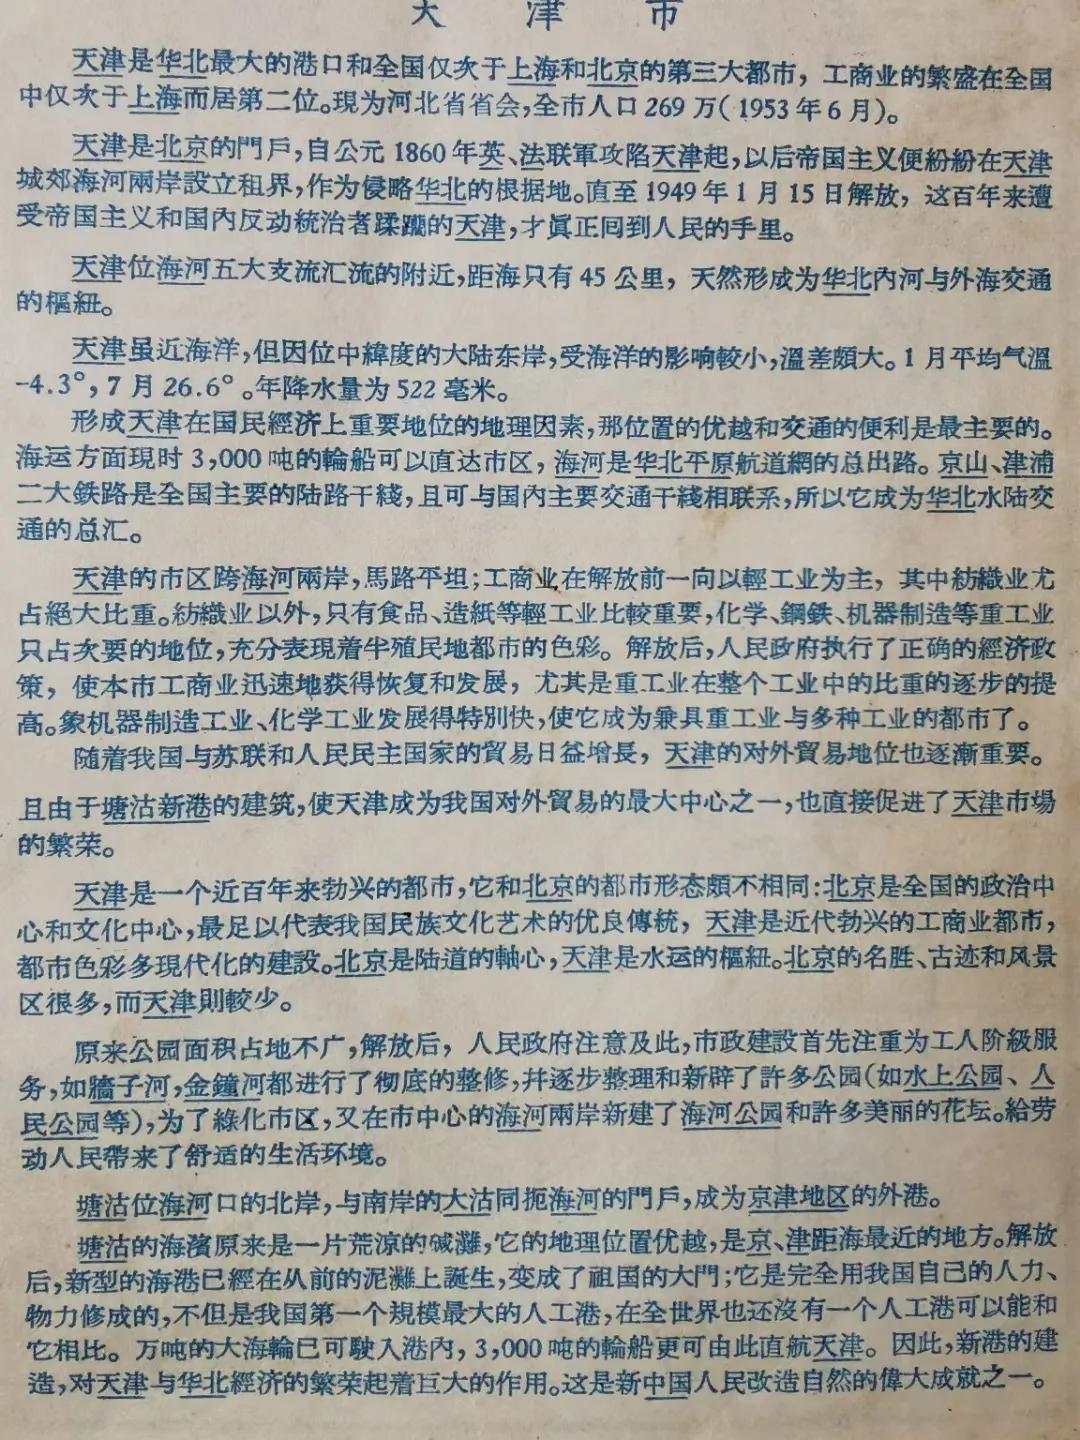 天津市
天津是华北最大的港口和全国仅次于上海和北京的第三大都市，工商业的繁盛在全国
中仅次于上海而居第二位。現为河北省省会，全市人口269万（1953年6月）。
天津是北京的門戶，自公元1860年英、法联軍攻陷天津起，以后帝国主义便紛紛在天津
城郊海河兩岸設立租界，作为侵略华北的根据地。直至1949年1月15日解放，这百年来遭
受帝国主义和国內反动統治者蹂躪的天津，才眞正囘到人民的手里。
天津位海河五大支流汇流的附近，距海只有45公里，天然形成为华北內河与外海交通
的樞紐。
天津虽近海洋，但因位中緯度的大陆东岸，受海洋的影响較小，溫差頗大。1月平均气溫
-4.3°，7月26.6°。年降水量为522毫米。
形成天津在国民經济上重要地位的地理因素，那位置的优越和交通的便利是最主要的。
海运方面現时3,000吨的輪船可以直达市区，海河是华北平原航道網的总出路。京山、津浦
二大鉄路是全国主要的陆路干綫，且可与国內主要交通干綫相联系，所以它成为华北水陆交
通的总汇。
天津的市区跨海河兩岸，馬路平坦；工商业在解放前一向以輕工业为主，其中紡織业尤
占絕大比重。紡織业以外，只有食品、造紙等輕工业比較重要，化学、鋼鉄、机器制造等重工业
只占次要的地位，充分表現着半殖民地都市的色彩。解放后，人民政府执行了正确的經济政
策，使本市工商业迅速地获得恢复和发展，尤其是重工业在整个工业中的比重的逐步的提
高。象机器制造工业、化学工业发展得特別快，使它成为兼具重工业与多种工业的都市了。
随着我国与苏联和人民民主国家的貿易日益增長，天津的对外貿易地位也逐漸重要。
且由于塘沽新港的建筑，使天津成为我国对外貿易的最大中心之一，也直接促进了天津市場
的繁荣。
天津是一个近百年来勃兴的都市，它和北京的都市形态頗不相同：北京是全国的政治中
心和文化中心，最足以代表我国民族文化艺术的优良傳統，天津是近代勃兴的工商业都市，
都市色彩多現代化的建設。北京是陆道的軸心，天津是水运的樞紐。北京的名胜、古迹和风景
区很多，而天津則較少。
原来公园面积占地不广，解放后，人民政府注意及此，市政建設首先注重为工人阶級服
务，如牆子河，金鐘河都进行了彻底的整修，幷逐步整理和新辟了許多公园（如水上公园、人
民公园等），为了綠化市区，又在市中心的海河兩岸新建了海河公园和許多美丽的花坛。給劳
动人民帶来了舒适的生活环境。
塘沽位海河口的北岸，与南岸的大沽同扼海河的門戶，成为京津地区的外港。
塘沽的海濱原来是一片荒涼的碱灘，它的地理位置优越，是京、津距海最近的地方。解放
后，新型的海港已經在从前的泥灘上誕生，变成了祖国的大門；它是完全用我国自己的人力、
物力修成的，不但是我国第一个規模最大的人工港，在全世界也还沒有一个人工港可以能和
它相比。万吨的大海輪已可駛入港內，3,000吨的輪船更可由此直航天津。因此，新港的建
造，对天津与华北經济的繁荣起着巨大的作用。这是新中国人民改造自然的偉大成就之一。